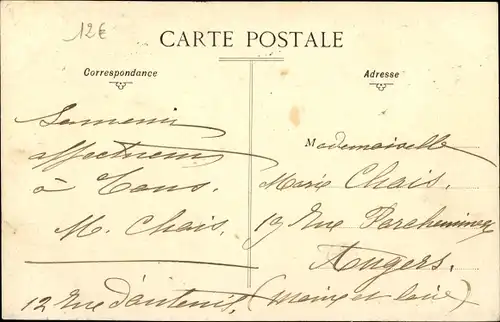 12€
CARTE POSTALE
Correspondance
Adresse
Souvenir
affectueux
à Tous.
M. Chais.
12 Rue d'antenis,
Mademoiselle
Marie Chais.
19 Rue Parcheminerie
Angers.
(Maine et Loire)